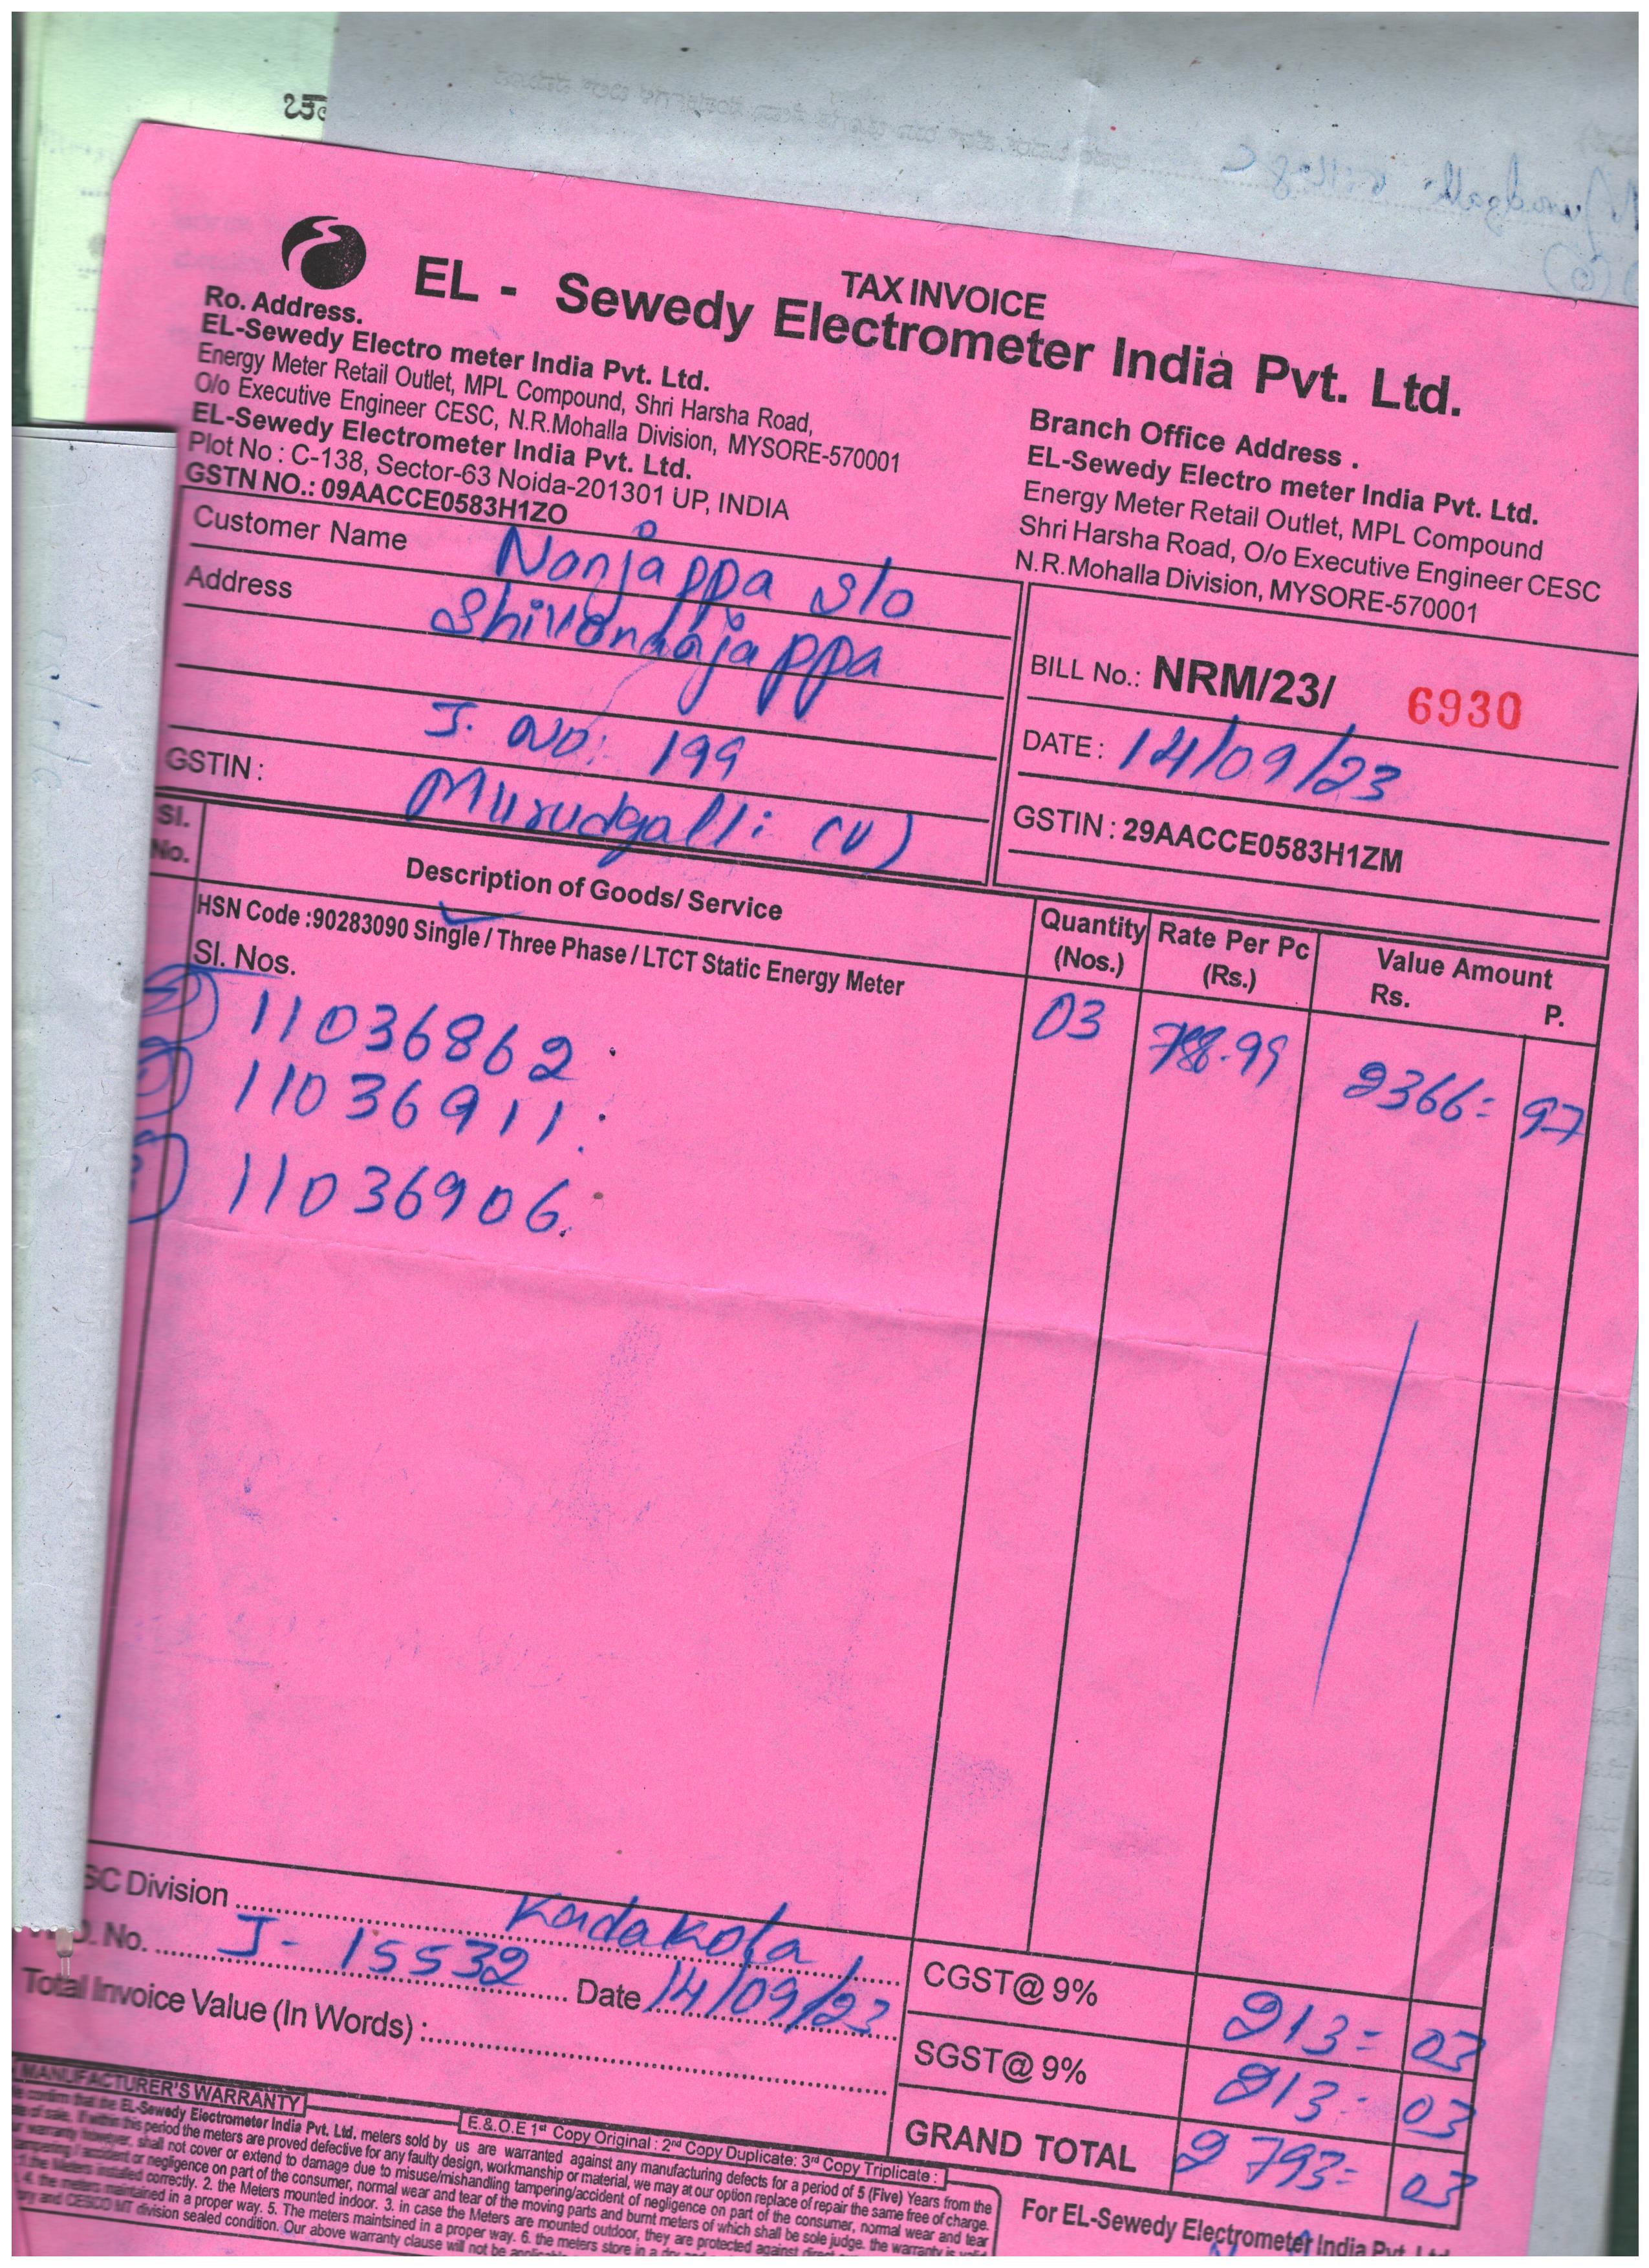 TAX INVOICE
EL - Sewedy Electrometer India Pvt. Ltd.
Ro. Address.
EL-Sewedy Electro meter India Pvt. Ltd.
Energy Meter Retail Outlet, MPL Compound, Shri Harsha Road,
O/o Executive Engineer CESC, N.R.Mohalla Division, MYSORE-570001
EL-Sewedy Electrometer India Pvt. Ltd.
Plot No : C-138, Sector-63 Noida-201301 UP, INDIA
GSTN NO.: 09AACCE0583H1ZO
Branch Office Address .
EL-Sewedy Electro meter India Pvt. Ltd.
Energy Meter Retail Outlet, MPL Compound
Shri Harsha Road, O/o Executive Engineer CESC
N.R.Mohalla Division, MYSORE-570001
Customer Name Nanjappa S/o
Address Shivanaajappa
J. NO: 199
GSTIN : Murudgalli (V)
BILL No.: NRM/23/ 6930
DATE : 14/09/23
GSTIN : 29AACCE0583H1ZM
Sl. No. Description of Goods/ Service Quantity (Nos.) Rate Per Pc (Rs.) Value Amount Rs. P.
HSN Code :90283090 Single / Three Phase / LTCT Static Energy Meter
Sl. Nos.
11036862 03 788.99 2366= 97
11036911
11036906
SC Division Kadakola
No. J- 15532 Date 14/09/23
Total Invoice Value (In Words) :
CGST@ 9% 213= 03
SGST@ 9% 213= 03
GRAND TOTAL 2793= 03
MANUFACTURER'S WARRANTY
E.&.O.E 1st Copy Original : 2nd Copy Duplicate: 3rd Copy Triplicate :
confirm that the EL-Sewedy Electrometer India Pvt. Ltd. meters sold by us are warranted against any manufacturing defects for a period of 5 (Five) Years from the
of sale. If within this period the meters are proved defective for any faulty design, workmanship or material, we may at our option replace of repair the same free of charge.
warranty however, shall not cover or extend to damage due to misuse/mishandling tampering/accident of negligence on part of the consumer, normal wear and tear
tampering / accident or negligence on part of the consumer, normal wear and tear of the moving parts and burnt meters of which shall be sole judge. the warranty is valid
the Meters installed correctly. 2. the Meters mounted indoor. 3. in case the Meters are mounted outdoor, they are protected against direct
4. the meters maintained in a proper way. 5. The meters maintsined in a proper way. 6. the meters store in a dry
and CESCO MT division sealed condition. Our above warranty clause will not be
For EL-Sewedy Electrometer India Pvt. Ltd.